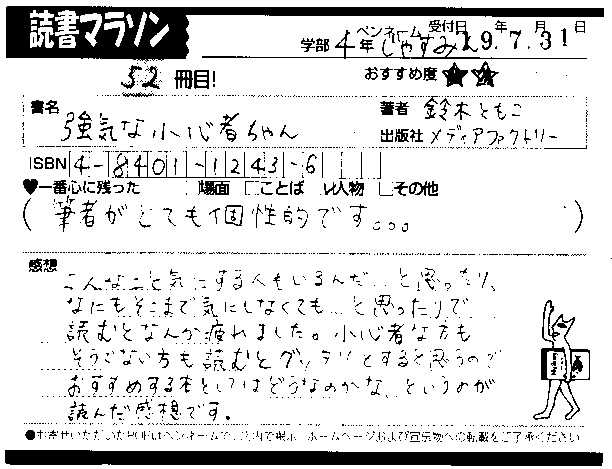 読書マラソン
学部 4年 ペンネーム じゃすみん 受付日 19年7月31日
52冊目! おすすめ度 ★★
書名 強気な小心者ちゃん 著者 鈴木ともこ
出版社 メディアファクトリー
ISBN 4-8401-1243-6
♥一番心に残った □場面 □ことば レ人物 □その他
(筆者がとても個性的です。。。)
感想
こんなこと気にする人もいるんだ…と思ったり、
なにもそこまで気にしなくても…と思ったりで
読むとなんか疲れました。小心者な方も
そうでない方も読むとグッタリとすると思うので
おすすめする本としてはどうなのかな、というのが
読んだ感想です。
●お寄せいただいたPOPはペンネームで店内で掲示、ホームページおよび宣伝物への転載をご了承ください